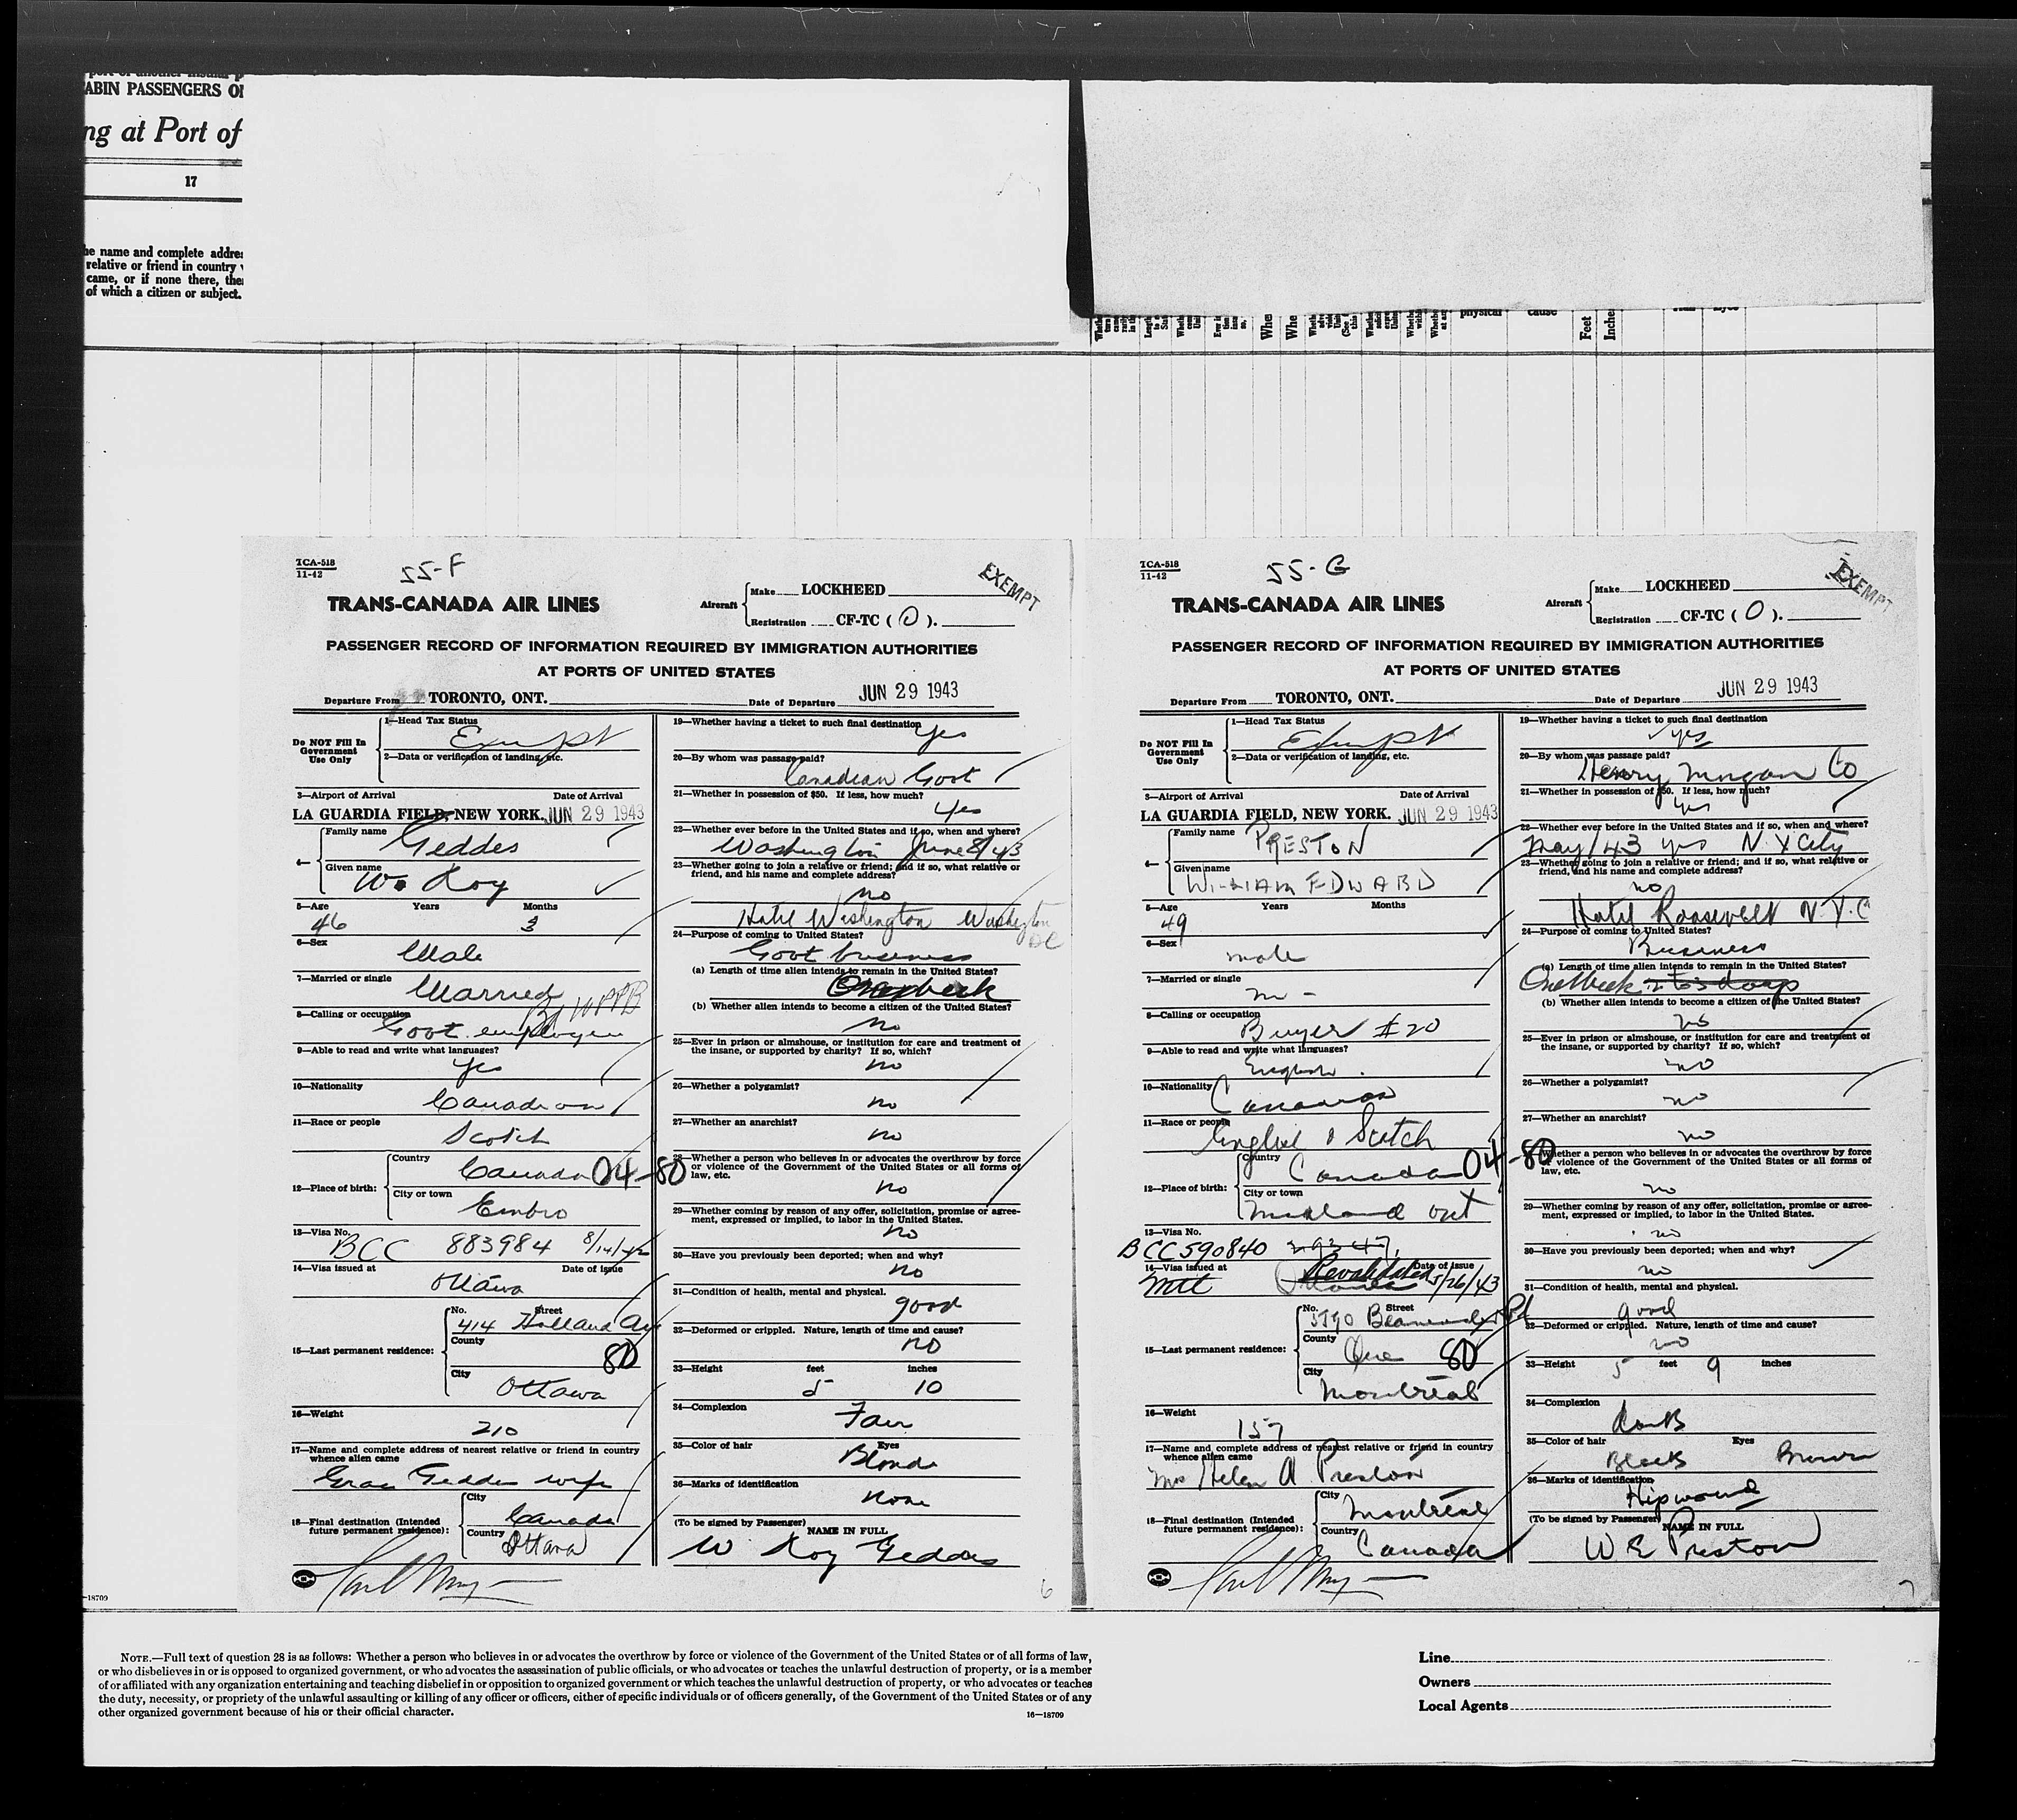 ABIN PASSENGERS
ng at Port of
17
he name and complete
relative or friend in country
came, or if none there,
of which a citizen or subject.
physical
cause
Feet
TCA-518
11-42
55-F
EXEMPT
TRANS-CANADA AIR LINES
Aircraft
Make LOCKHEED
Registration CF-TC ( O ).
PASSENGER RECORD OF INFORMATION REQUIRED BY IMMIGRATION AUTHORITIES
AT PORTS OF UNITED STATES
Departure From TORONTO, ONT.
Date of Departure JUN 29 1943
Do NOT Fill In
Government
Use Only
1—Head Tax Status
Exempt
2—Data or verification of landing, etc.
3—Airport of Arrival Date of Arrival
LA GUARDIA FIELD, NEW YORK. JUN 29 1943
4— Family name Geddes
Given name W. Roy
5—Age Years Months
46 3
6—Sex
Male
7—Married or single
Married
8—Calling or occupation
Govt. employee
9—Able to read and write what languages?
Yes
10—Nationality
Canadian
11—Race or people
Scotch
12—Place of birth: Country Canada 04-80
City or town Embro
13—Visa No.
BCC 883984 8/14/42
14—Visa issued at Date of issue
Ottawa
15—Last permanent residence: No. Street
414 Holland Av
County
80
City
Ottawa
16—Weight
210
17—Name and complete address of nearest relative or friend in country
whence alien came
Geddes wife
18—Final destination (Intended
future permanent residence):
City
Canada
Country
Ottawa
19—Whether having a ticket to such final destination
Yes
20—By whom was passage paid?
Canadian Govt
21—Whether in possession of $50. If less, how much?
Yes
22—Whether ever before in the United States and if so, when and where?
Washington June 8/43
23—Whether going to join a relative or friend; and if so, what relative or
friend, and his name and complete address?
no
Hotel Washington Washington
DC
24—Purpose of coming to United States?
Govt business
(a) Length of time alien intends to remain in the United States?
One week
(b) Whether alien intends to become a citizen of the United States?
no
25—Ever in prison or almshouse, or institution for care and treatment of
the insane, or supported by charity? If so, which?
no
26—Whether a polygamist?
no
27—Whether an anarchist?
no
28—Whether a person who believes in or advocates the overthrow by force
or violence of the Government of the United States or all forms of
law, etc.
no
29—Whether coming by reason of any offer, solicitation, promise or agree-
ment, expressed or implied, to labor in the United States.
no
30—Have you previously been deported; when and why?
no
31—Condition of health, mental and physical.
good
32—Deformed or crippled. Nature, length of time and cause?
no
33—Height feet inches
5 10
34—Complexion
Fair
35—Color of hair Eyes
Blonde
36—Marks of identification
none
(To be signed by Passenger)
NAME IN FULL
W Roy Geddes
6
TCA-518
11-42
55-G
EXEMPT
TRANS-CANADA AIR LINES
Aircraft
Make LOCKHEED
Registration CF-TC ( O ).
PASSENGER RECORD OF INFORMATION REQUIRED BY IMMIGRATION AUTHORITIES
AT PORTS OF UNITED STATES
Departure From TORONTO, ONT.
Date of Departure JUN 29 1943
Do NOT Fill In
Government
Use Only
1—Head Tax Status
Exempt
2—Data or verification of landing, etc.
3—Airport of Arrival Date of Arrival
LA GUARDIA FIELD, NEW YORK. JUN 29 1943
4— Family name PRESTON
Given name WILLIAM EDWARD
5—Age Years Months
49
6—Sex
male
7—Married or single
m -
8—Calling or occupation
Buyer #20
9—Able to read and write what languages?
English.
10—Nationality
Canadian
11—Race or people
English & Scotch
12—Place of birth: Country Canada 04-80
City or town Midland ont
13—Visa No.
BCC 590840
14—Visa issued at Date of issue
Mtl Revalidated 5/26/43
15—Last permanent residence: No. Street
Rd
County
Que 80
City
Montreal
16—Weight
157
17—Name and complete address of nearest relative or friend in country
whence alien came
Mrs Helen A Preston
18—Final destination (Intended
future permanent residence):
City
Montreal
Country
Canada
19—Whether having a ticket to such final destination
yes
20—By whom was passage paid?
Henry Morgan Co
21—Whether in possession of $50. If less, how much?
yes
22—Whether ever before in the United States and if so, when and where?
May/43 yes N.Y City
23—Whether going to join a relative or friend; and if so, what relative or
friend, and his name and complete address?
no
Hotel Roosevelt N.Y.C
24—Purpose of coming to United States?
Business
(a) Length of time alien intends to remain in the United States?
One Week 2 to 3 days
(b) Whether alien intends to become a citizen of the United States?
no
25—Ever in prison or almshouse, or institution for care and treatment of
the insane, or supported by charity? If so, which?
no
26—Whether a polygamist?
no
27—Whether an anarchist?
no
Whether a person who believes in or advocates the overthrow by force
or violence of the Government of the United States or all forms of
law, etc.
no
29—Whether coming by reason of any offer, solicitation, promise or agree-
ment, expressed or implied, to labor in the United States.
no
30—Have you previously been deported; when and why?
no
31—Condition of health, mental and physical.
good
32—Deformed or crippled. Nature, length of time and cause?
no
33—Height 5 feet 9 inches
34—Complexion
dark
35—Color of hair Eyes
Black Brown
36—Marks of identification
Hip wound
(To be signed by Passenger)
NAME IN FULL
W E Preston
7
—18709
NOTE.—Full text of question 28 is as follows: Whether a person who believes in or advocates the overthrow by force or violence of the Government of the United States or of all forms of law,
or who disbelieves in or is opposed to organized government, or who advocates the assassination of public officials, or who advocates or teaches the unlawful destruction of property, or is a member
of or affiliated with any organization entertaining and teaching disbelief in or opposition to organized government or which teaches the unlawful destruction of property, or who advocates or teaches
the duty, necessity, or propriety of the unlawful assaulting or killing of any officer or officers, either of specific individuals or of officers generally, of the Government of the United States or of any
other organized government because of his or their official character.
16—18709
Line
Owners
Local Agents